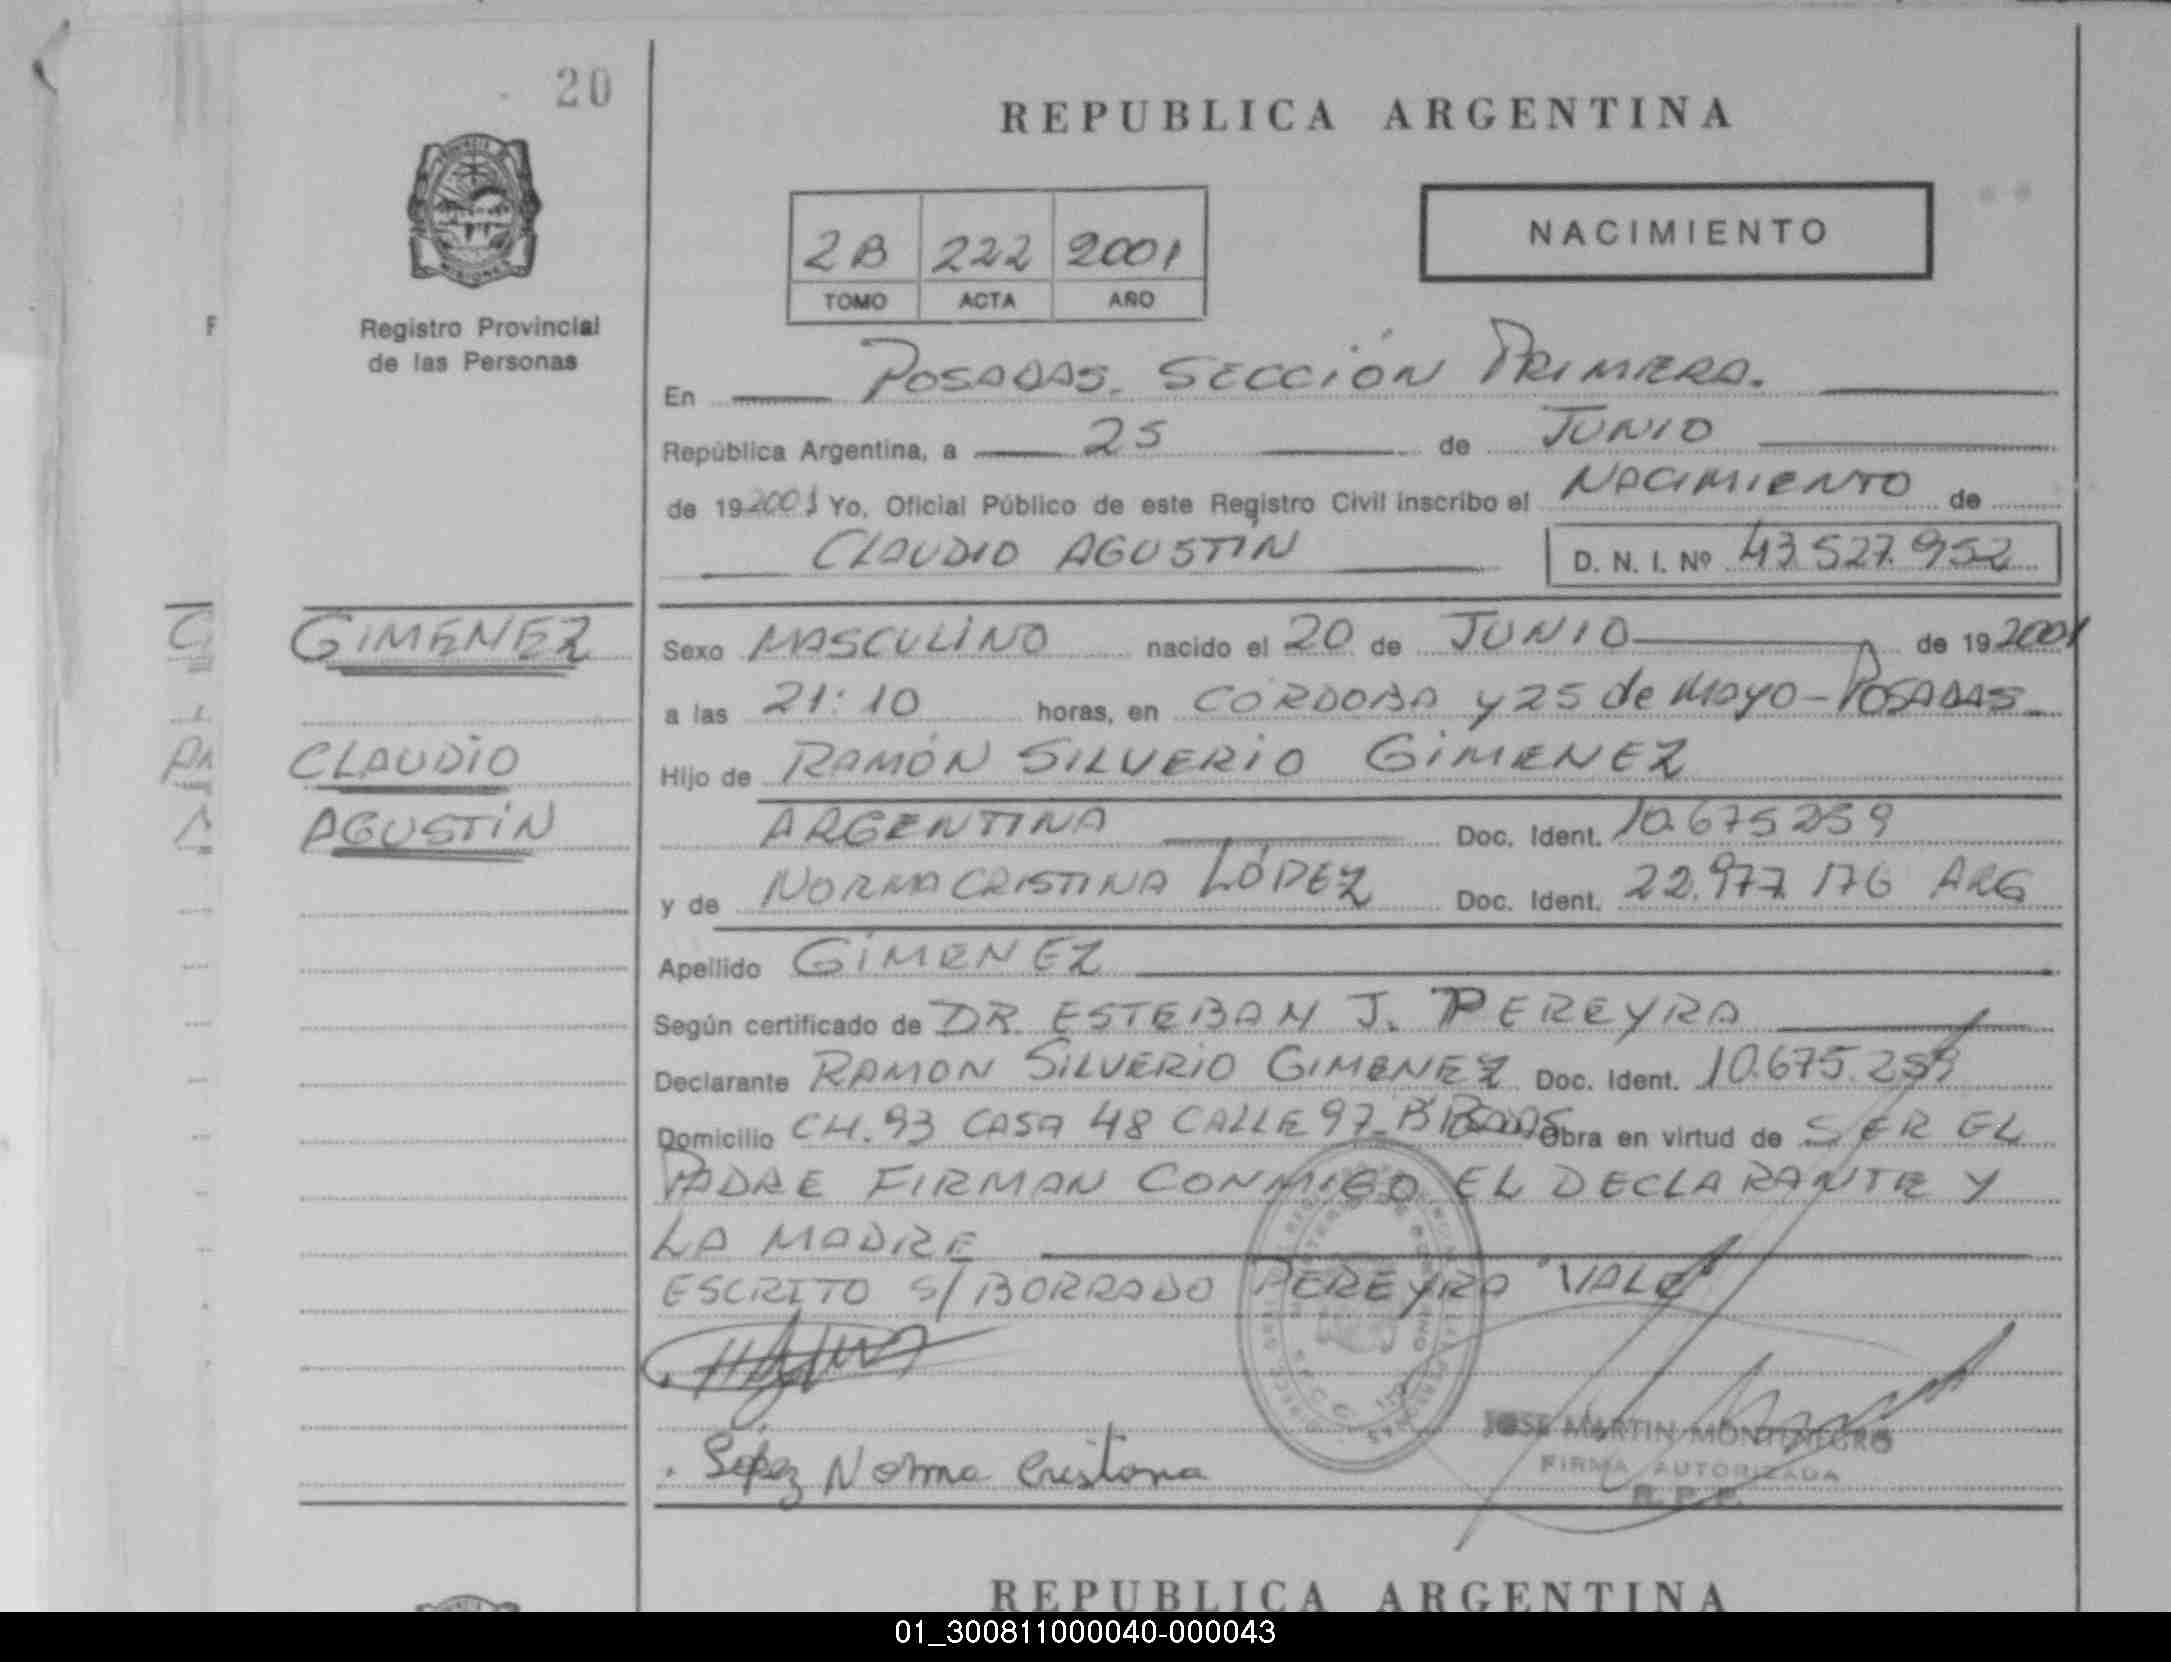 20
REPUBLICA ARGENTINA
2B 222 2001
TOMO ACTA AÑO
NACIMIENTO
Registro Provincial
de las Personas
En POSADAS. SECCIÓN PRIMERA.
República Argentina, a 25 de JUNIO
de 19 2001 Yo, Oficial Público de este Registro Civil inscribo el NACIMIENTO de
CLAUDIO AGUSTIN D. N. I. Nº 43.527.952
GIMENEZ
CLAUDIO
AGUSTÍN
Sexo MASCULINO nacido el 20 de JUNIO de 19 2001
a las 21:10 horas, en CORDOBA y 25 de Mayo - POSADAS
Hijo de RAMÓN SILVERIO GIMENEZ
ARGENTINA Doc. Ident. 10.675259
y de NORMA CRISTINA LÓPEZ Doc. Ident. 22.977.176 ARG
Apellido GIMENEZ
Según certificado de DR. ESTEBAN J. PEREYRA
Declarante RAMON SILVERIO GIMENEZ Doc. Ident. 10.675.259
Domicilio CH. 93 CASA 48 CALLE 97 Obra en virtud de SER EL
PADRE FIRMAN CONMIGO EL DECLARANTE Y
LA MADRE
ESCRITO S/ BORRADO PEREYRA "VALE"
López Norma Cristina
JOSE MARTIN MONTENEGRO
FIRMA AUTORIZADA
R. P. P.
REPUBLICA ARGENTINA
01_300811000040-000043